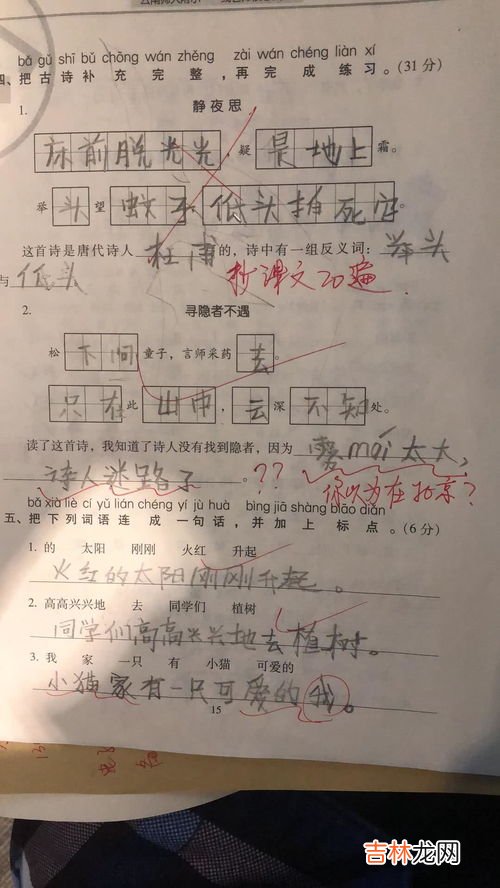 bǎ gǔ shī bǔ chōng wán zhěng zài wán chéng liàn xí
四、把古诗补充完整,再完成练习。(31分)
1. 静夜思
床前脱光光,疑是地上霜。
举头望蚊子,低头拍死它。
这首诗是唐代诗人杜甫的,诗中有一组反义词:举头
与低头
抄课文20遍.
2. 寻隐者不遇
松下问童子,言师采药去。
只在此山中,云深不知处。
读了这首诗,我知道了诗人没有找到隐者,因为雾mái太大,
诗人迷路了。??你以为在北京?
bǎ xià liè cí yǔ lián chéng yí jù huà bìng jiā shàng biāo diǎn
五、把下列词语连成一句话,并加上标点。(6分)
1. 的 太阳 刚刚 火红 升起
火红的太阳刚刚升起。
2. 高高兴兴地 去 同学们 植树
同学们高高兴兴地去植树。
3. 我 家 一只 有 小猫 可爱的
小猫家有一只可爱的我。
15
吉林龙网